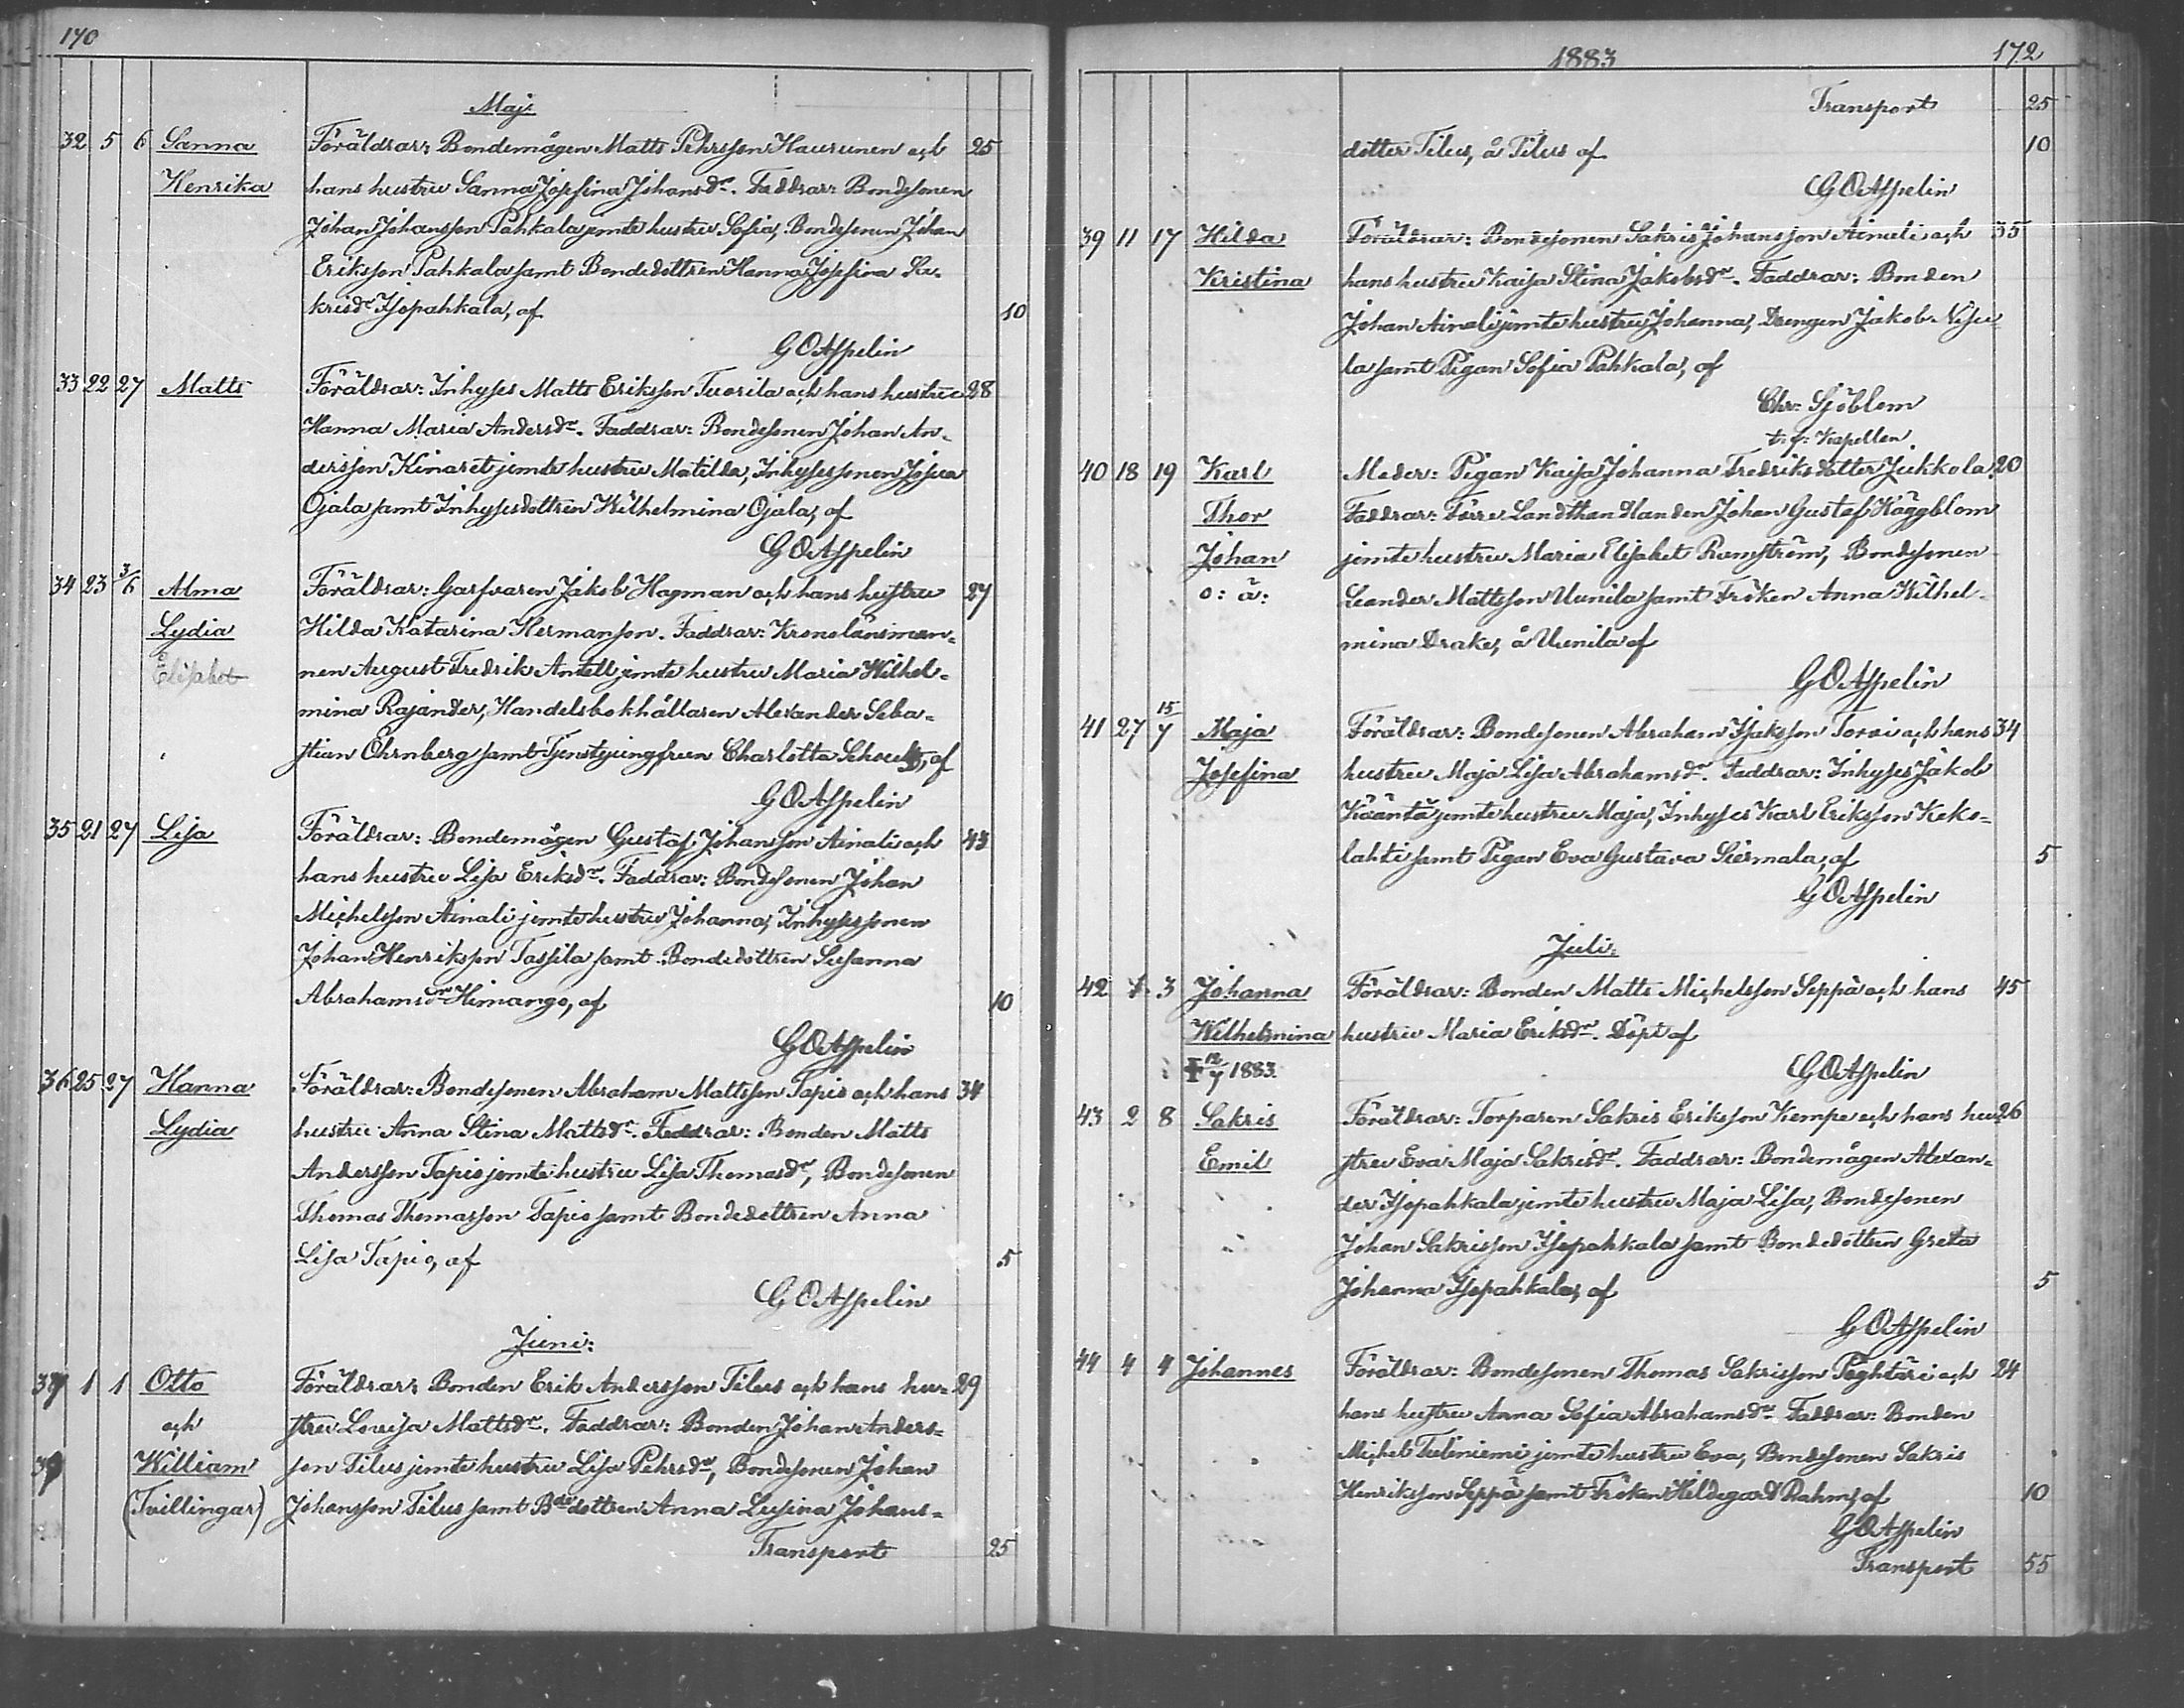 170
Maj:
32 5 6 Sanna Föräldrar: Bondemågen Matts Pehrsson Haurunen och 25
Henrika hans hustru Sanna Josefina Johansdr. Faddrar: Bondesonen
Johan Johansson Pahkala jemte hustru Sofia, Bondesonen Johan
Eriksson Pahkala samt Bondedottren Hanna Josefina Sa-
krisdr Isopahkala, af 10
G O Aspelin
33 22 27 Matts Föräldrar: Inhyses Matts Eriksson Tuorila och hans hustru 28
Hanna Maria Andersdr. Faddrar: Bondesonen Johan An-
dersson Kinaret jemte hustru Matilda, Inhysessonen Josua
Ojala samt Inhysesdottren Wilhelmina Ojala, af
G O Aspelin
34 23 3/6 Alma Föräldrar: Garfvaren Jakob Hagman och hans hustru 27
Lydia Hilda Katarina Hermanson. Faddrar: Kronolänsman-
Elisabet nen August Fredrik Antell jemte hustru Maria Wilhel-
mina Rajander, Handelsbokhållaren Alexander Seba-
stian Öhrnberg samt Tjenstejungfrun Charlotta, af
G O Aspelin
35 21 27 Lisa Föräldrar: Bondemågen Gustaf Johansson Ainali och 43
hans hustru Lisa Eriksdr. Faddrar: Bondesonen Johan
Michelsson Ainali jemte hustru Johanna, Inhysessonen
Johan Henriksson Tassila samt Bondedottren Susanna
Abrahamsdr Himango, af 10
G O Aspelin
36 25 27 Hanna Föräldrar: Bondesonen Abraham Mattsson Tapio och hans 34
Lydia hustru Anna Stina Mattsdr. Faddrar: Bonden Matts
Andersson Tapio jemte hustru Lisa Thomasdr, Bondesonen
Thomas Thomasson Tapio samt Bondedottren Anna
Lisa Tapio, af 5
G O Aspelin
Juni:
37 1 1 Otto Föräldrar: Bonden Erik Andersson Tilus och hans hu- 29
och stru Lovisa Mattsdr. Faddrar: Bonden Johan Anders-
William son Tilus jemte hustru Lisa Pehrsdr, Bondesonen Johan
(Tvillingar) Johansson Tilus samt Bdedottren Anna Lusina Johans-
Transport 25
1883 172
Transport 25
dotter Tilus, å Tilus af 10
G O Aspelin
39 11 17 Hilda Föräldrar: Bondesonen Sakris Johansson Ainali och 35
Kristina hans hustru Kaisa Stina Jakobsdr. Faddrar: Bonden
Johan Ainali jemte hustru Johanna, Drengen Jakob Nisu
la samt Pigan Sofia Pahkala, af
Chr: Sjöblom
t: f: Kapellan
40 18 19 Karl Moder: Pigan Kaisa Johanna Fredriksdotter Jukkola. 20
Thor Faddrar: Förre Landthandlanden Johan Gustaf Häggblom
Johan jemte hustru Maria Elisabet Ramström, Bondesonen
o: ä: Leander Mattsson Uunila samt Fröken Anna Wilhel-
mina Drake, å Uunila af
G O Aspelin
41 27 15/7 Maja Föräldrar: Bondesonen Abraham Isaksson Torvi och hans 34
Josefina hustru Maja Lisa Abrahamsdr. Faddrar: Inhyses Jakob
Kääntä jemte hustru Maja, Inhyses Karl Eriksson Keko-
lahti samt Pigan Eva Gustava Siermala, af 5
G O Aspelin
Juli:
42 1 3 Johanna Föräldrar: Bonden Matts Michelsson Seppä och hans 45
Wilhelmina hustru Maria Eriksdr. Döpt af
✝ 12/7 1883. G O Aspelin
43 2 8 Sakris Föräldrar: Torparen Sakris Eriksson Kempe och hans hu- 26
Emil stru Eva Maja Sakrisdr. Faddrar: Bondemågen Alexan-
der Isopahkala jemte hustru Maja Lisa, Bondesonen
Johan Sakrisson Isopahkala samt Bondedottren Greta
Johanna Isopahkala, af 5
G O Aspelin
44 4 4 Johannes Föräldrar: Bondesonen Thomas Sakrisson Pöyhtäri och 24
hans hustru Anna Sofia Abrahamsdr. Faddrar: Bonden
Michel Tuliniemi jemte hustru Eva, Bondesonen Sakris
Henriksson Seppä samt Fröken Hildegard Rahm, af 10
G O Aspelin
Transport 55